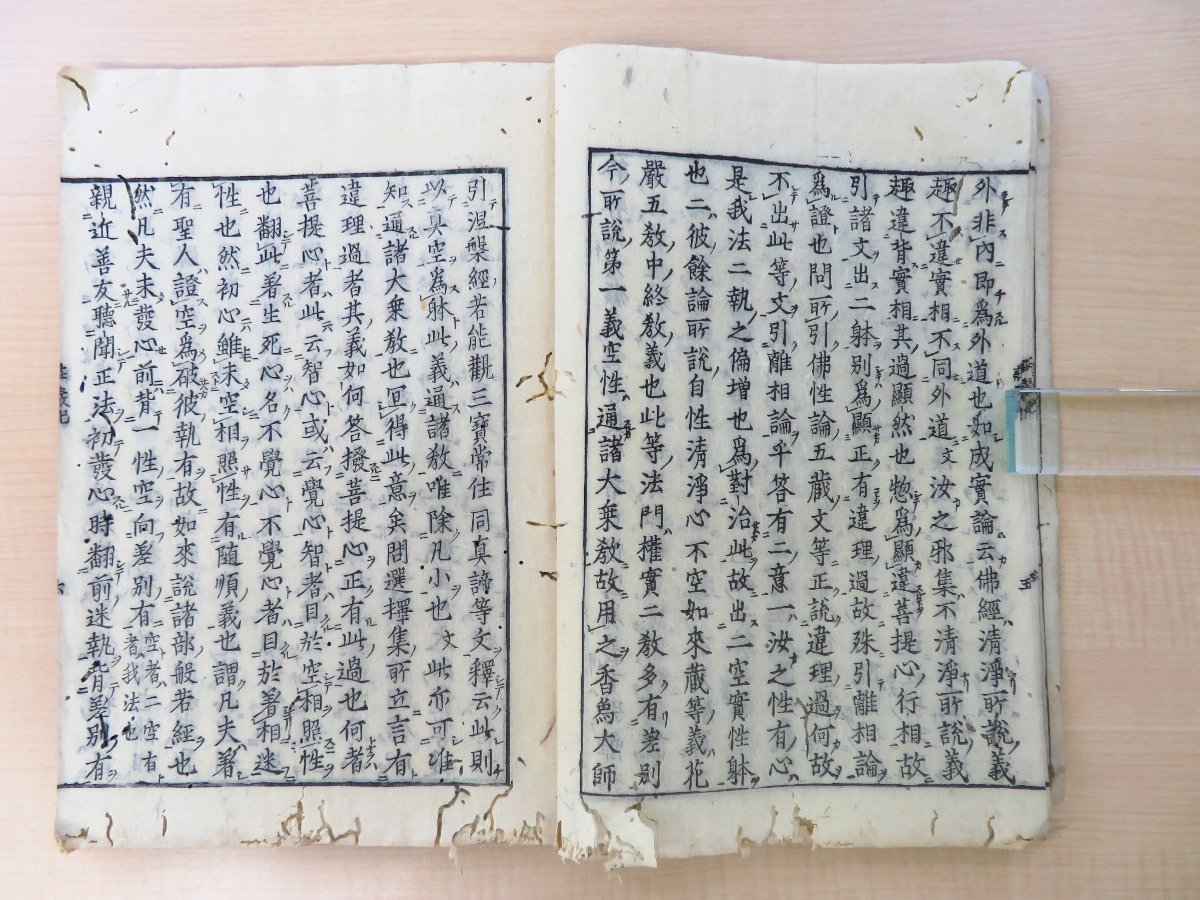 外非內即爲外道也如成實論云佛經清淨所說義
趣不違實相不同外道文汝之邪集不清淨所說義
趣違背實相其過顯然也惣爲顯違菩提心行相故
引諸文出二躰別爲顯正有違理過故殊引離相論
爲證也問所引佛性論五藏文等正說違理過何故
不出此等文引離相論乎答有二意一汝之性有心
是我法二執之偏增也爲對治此故出二空實性躰
也二彼餘論所說自性清淨心不空如來藏等義花
嚴五教中終教義也此等法門權實二教多有差別
今所說第一義空性通諸大乘教故用之香爲大師
引涅槃經若能觀三寶常住同真諦等文釋云此則
以真空爲躰此義通諸教唯除凡小也文此亦可准
知通諸大乘教也叵得此意矣問選擇集所立言有
違理過者其義如何答撥菩提心正有此過也何者
菩提心者此云智心或云覺心智者目於空相照性
也翻此著生死心名不覺心不覺心者目於著相迷
性也然初心雖未空相照性有隨順義也謂凡夫著
有聖人證空爲破彼執有故如來說諸部般若經也
然凡夫未發心前背一性空向差別有空者二空有者我法也
親近善友聽聞正法初發心時翻前迷執背差別有